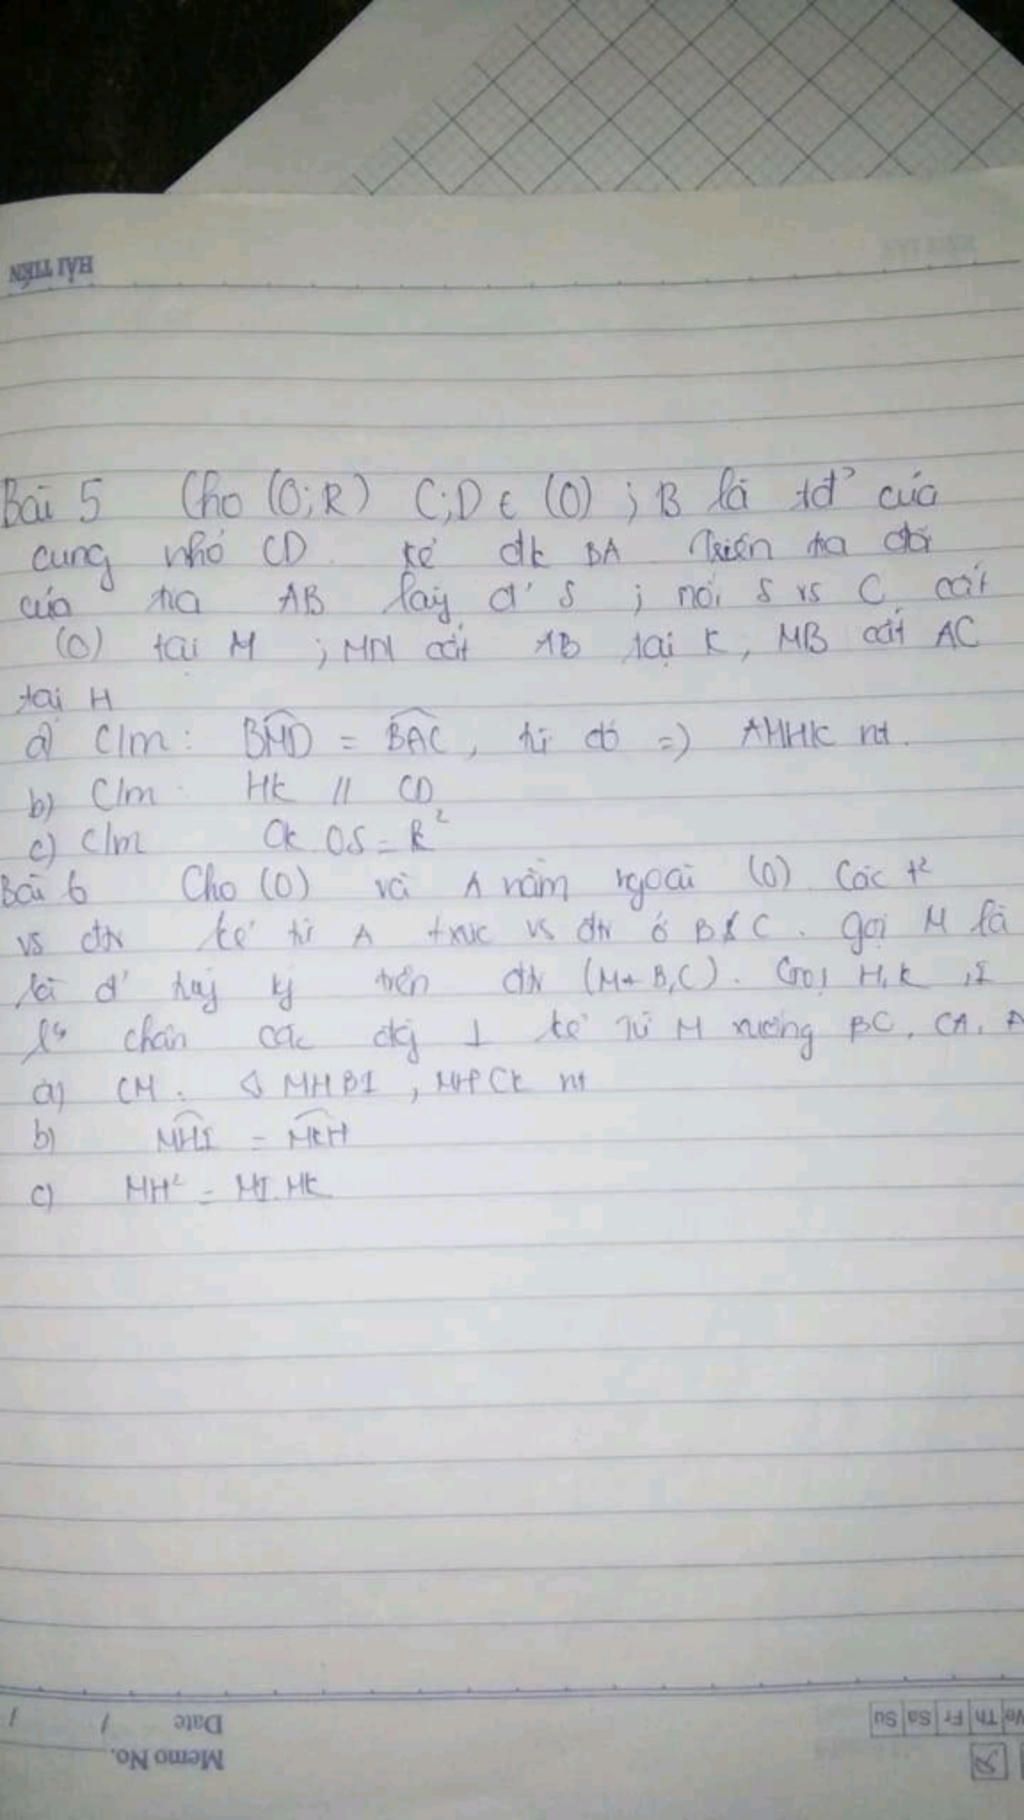 HẢI TIẾN
Bài 5 Cho (O;R) C;D ∈ (O) ; B là tđ' của
cung nhỏ CD kẻ đk BA Trên tia đối
của tia AB lấy đ' S ; nối S vs C cắt
(O) tại M ; MD cắt AB tại K, MB cắt AC
tại H
a) C/m: BMD = BAC, từ đó => AMHK nt.
b) C/m HK // CD
c) C/m OK OS = R²
Bài 6 Cho (O) và A nằm ngoài (O) Các t²
vs đtr kẻ từ A txúc vs đtr ở B & C. gọi M là
là đ' tùy ý trên đtr (M≠ B,C). Gọi H,K ,I
là chân các đg ⊥ kẻ từ M xuống BC, CA, A
a) CM: MHBI, MHCK nt
b) MHI = MKH
c) MH² = MI.MK
Ve Th Fr Sa Su
Memo No.
Date / /